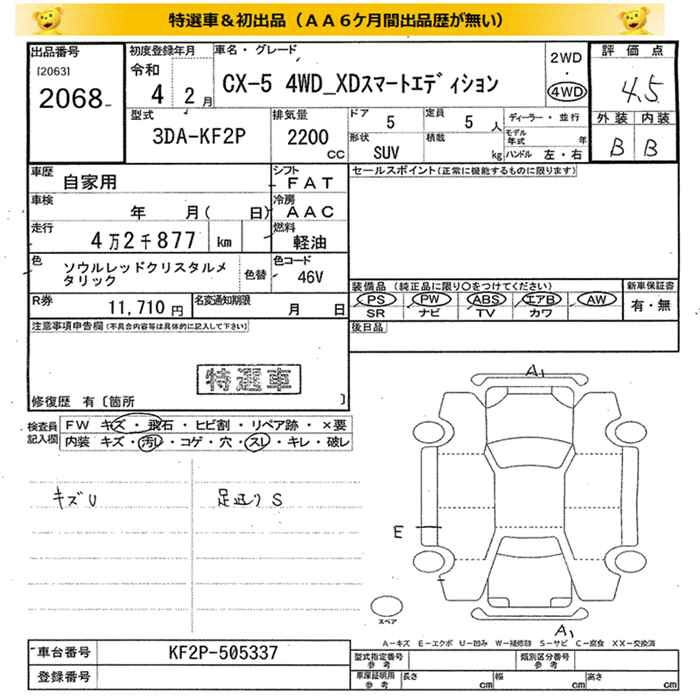 特選車＆初出品（ＡＡ６ケ月間出品歴が無い）
出品番号
[2063]
2068
初度登録年月
令和
4 2月
車名・グレード
CX-5 4WD_XDスマートエディション
2WD
・
4WD
評価点
4.5
外装 内装
B B
型式
3DA-KF2P
排気量
2200
CC
ドア 5
形状 SUV
定員 5 人
積載 kg
ディーラー・並行
モデル年式 年
ハンドル 左・右
車歴 自家用
車検 年 月( 日)
走行 4万2千877 km
色 ソウルレッドクリスタルメタリック
色替
シフト FAT
冷房 AAC
燃料 軽油
色コード 46V
R券 11,710 円
名変通知期限 月 日
セールスポイント(正常に機能するものに限ります)
装備品 (純正品に限り○をつけてください)
新車保証書
PS PW ABS エアB AW
有・無
SR ナビ TV カワ
後日品
注意事項申告欄(不具合内容等は具体的に記入して下さい)
特選車
修復歴 有〔箇所 〕
検査員記入欄
FW キズ・飛石・ヒビ割・リペア跡・×要
内装 キズ・汚レ・コゲ・穴・スレ・キレ・破レ
キズU
足辺りS
A1
E
スペア
A1
A-キズ E-エクボ U-凹み W-補修跡 S-サビ C-腐食 XX-交換済
車台番号 KF2P-505337
登録番号
型式指定番号 参考
類別区分番号 参考
車庫証明用 参考
長さ cm
幅 cm
高さ cm